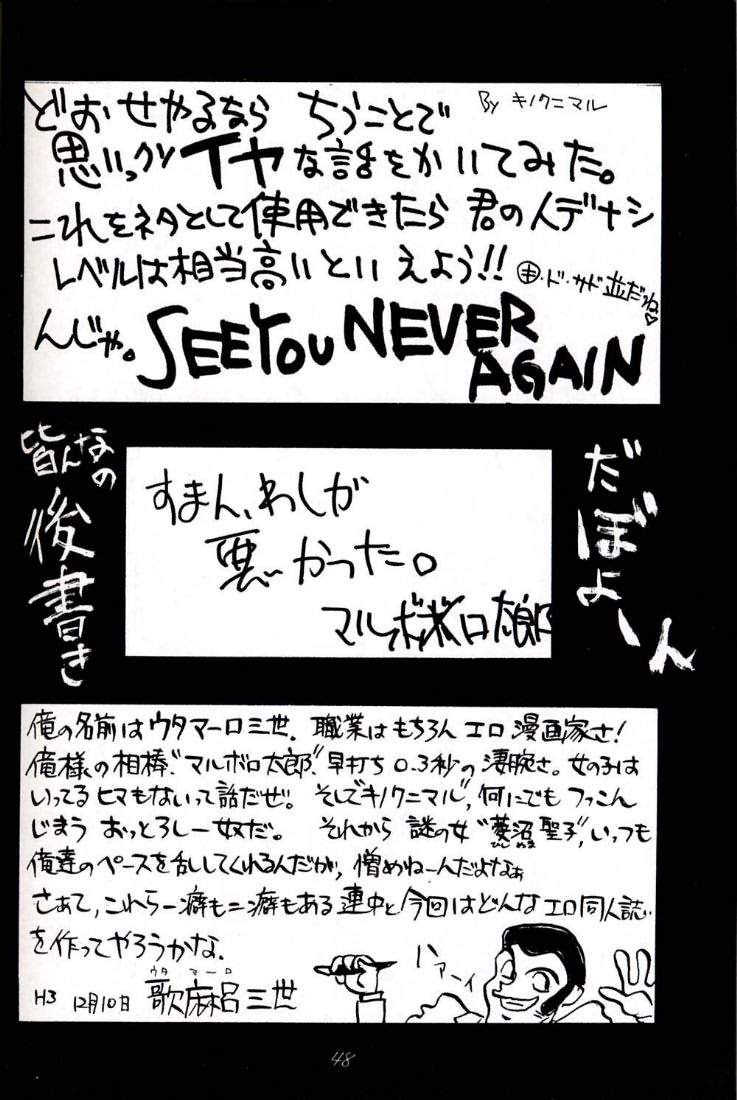 どおせやるなら ちうことで
By キノクニマル
思いっクソ イヤな話をかいてみた。
これをネタとして使用できたら 君の人デナシ
レベルは相当高いといえよう!!
・ド・サド並だね♡
んじゃ。SEE YOU NEVER
AGAIN
皆んなの
後書き
すまん、わしが
悪かった。
マルボボロ太郎
だぼよーん
俺の名前はウタマーロ三世。職業はもちろん エロ漫画家さ!
俺様の相棒“マルボロ太郎”早打ち0.3秒の凄腕さ。女の子は
いってるヒマもないって話だぜ。そして“キノクニマル”,何にでもつっこん
じまう おっとろしー奴だ。 それから 謎の女“菱沼聖子”,いっつも
ひし ぬま
俺達のペースを乱してくれるんだが,憎めねーんだよなぁ
さあて,これら一癖も二癖もある連中と今回はどんなエロ同人誌
を作ってやろうかな.
ハアーイ
ウタ マーロ
H3 12月10日 歌麻呂三世
48